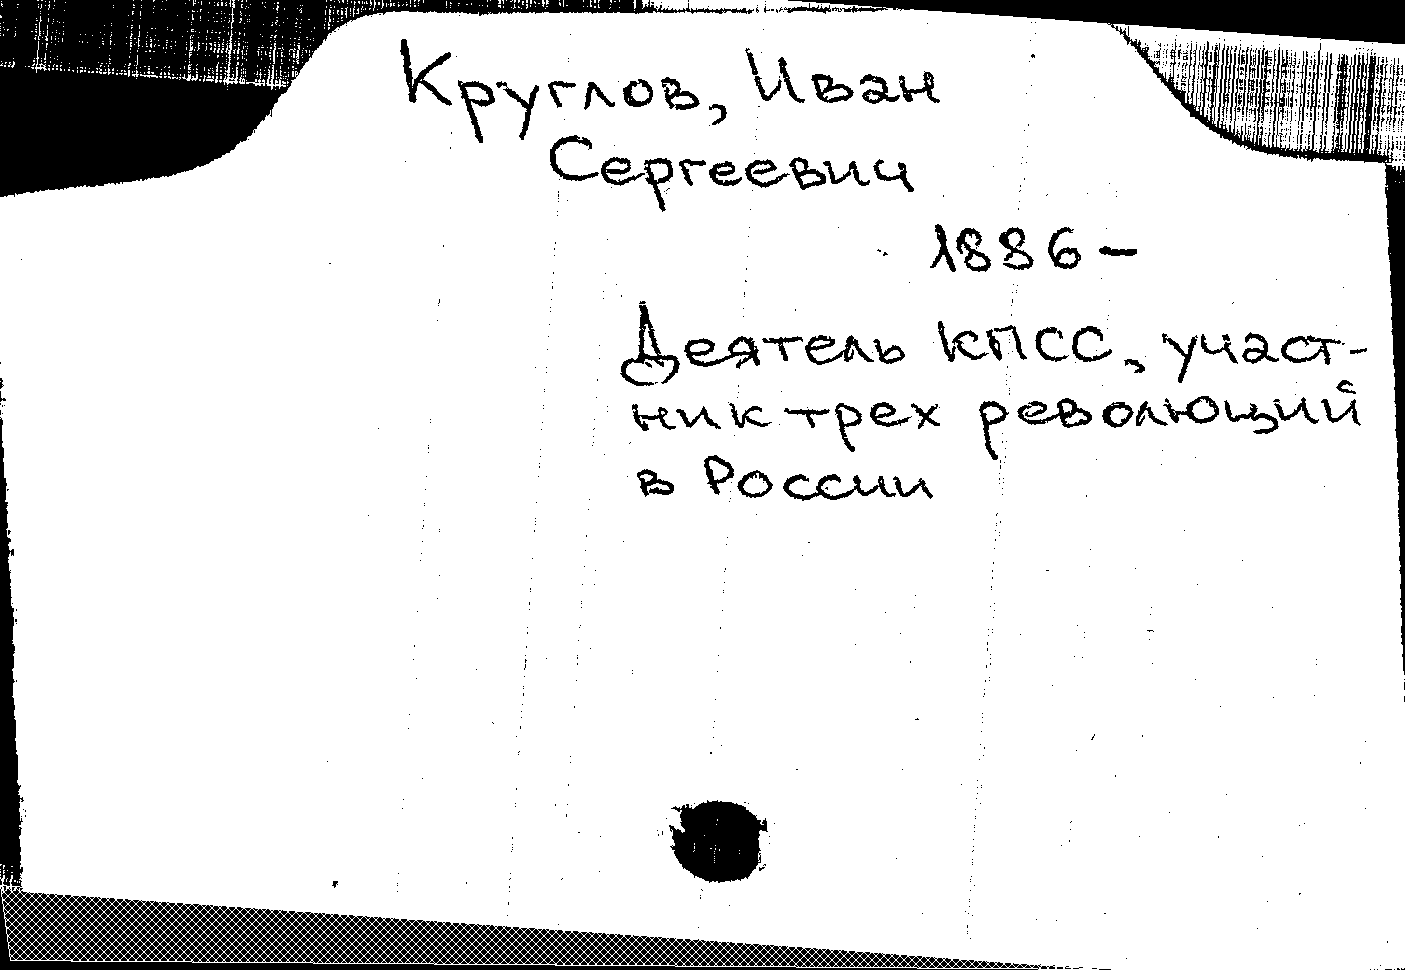 Круглов, Иван
Сергеевич
1886 –
Деятель КПСС, участ-
ник трех революций
в России